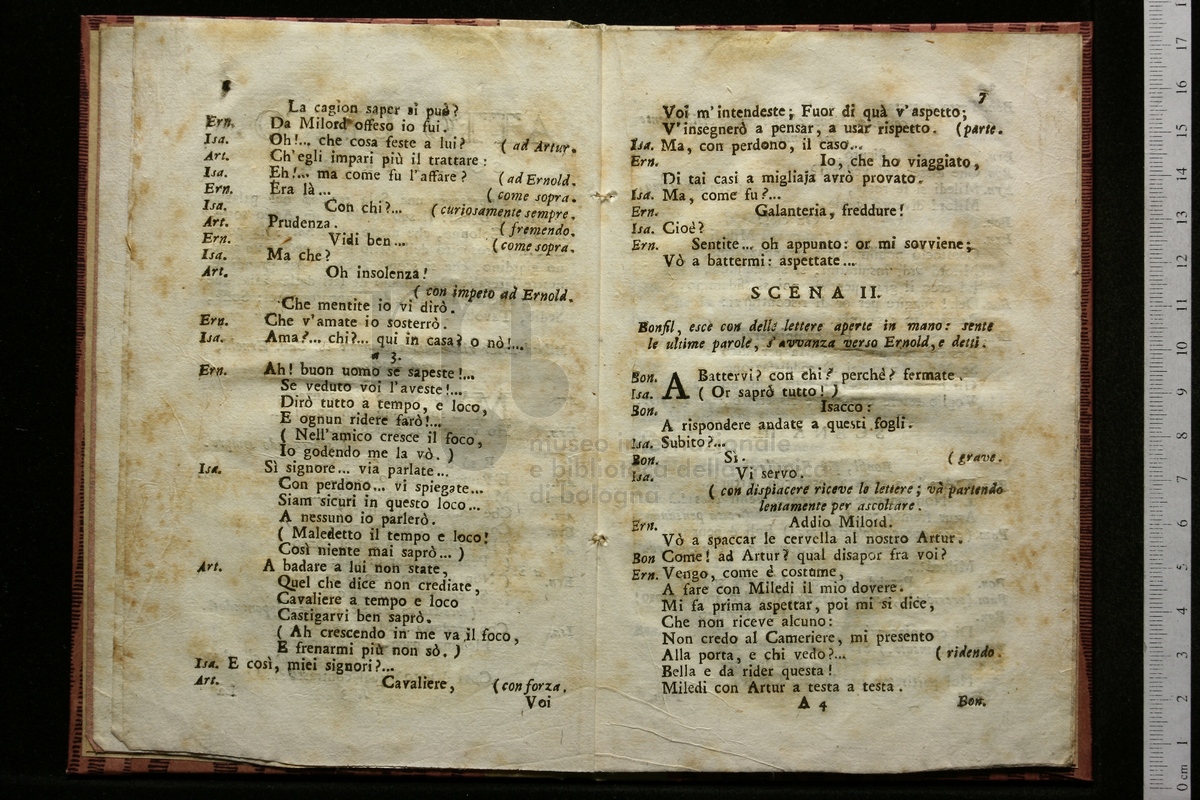 La cagion saper si può?
Ern. Da Milord offeso io fui.
Isa. Oh!... che cosa feste a lui? ( ad Artur.
Art. Ch'egli impari più il trattare:
Isa. Eh!... ma come fu l'affare? ( ad Ernold.
Ern. Era là... ( come sopra.
Isa. Con chi?... ( curiosamente sempre.
Art. Prudenza. ( fremendo.
Ern. Vidi ben... ( come sopra.
Isa. Ma che?
Art. Oh insolenza!
( con impeto ad Ernold.
Che mentite io vi dirò.
Ern. Che v'amate io sosterrò.
Isa. Ama?... chi?... qui in casa? o nò!...
a 3.
Ern. Ah! buon uomo se sapeste!...
Se veduto voi l'aveste!...
Dirò tutto a tempo, e loco,
E ognun ridere farò!...
( Nell'amico cresce il foco,
Io godendo me la vò. )
Isa. Sì signore... via parlate...
Con perdono... vi spiegate...
Siam sicuri in questo loco...
A nessuno io parlerò.
( Maledetto il tempo e loco!
Così niente mai saprò... )
Art. A badare a lui non state,
Quel che dice non crediate,
Cavaliere a tempo e loco
Castigarvi ben saprò.
( Ah crescendo in me va il foco,
E frenarmi più non sò. )
Isa. E così, miei signori?...
Art. Cavaliere, ( con forza.
Voi
7
Voi m'intendeste; Fuor di quà v'aspetto;
V'insegnerò a pensar, a usar rispetto. ( parte.
Isa. Ma, con perdono, il caso...
Ern. Io, che ho viaggiato,
Di tai casi a migliaja avrò provato.
Isa. Ma, come fu?...
Ern. Galanteria, freddure!
Isa. Cioè?
Ern. Sentite... oh appunto: or mi sovviene;
Vò a battermi: aspettate...
SCENA II.
Bonfil, esce con delle lettere aperte in mano: sente
le ultime parole, s'avvanza verso Ernold, e detti.
Bon. A Battervi? con chi? perchè? fermate.
Isa. ( Or saprò tutto! )
Bon. Isacco:
A rispondere andate a questi fogli.
Isa. Subito?...
Bon. Sì. ( grave.
Isa. Vi servo.
( con dispiacere riceve le lettere; và partendo
lentamente per ascoltare.
Ern. Addio Milord.
Vò a spaccar le cervella al nostro Artur.
Bon Come! ad Artur? qual disapor fra voi?
Ern. Vengo, come è costume,
A fare con Miledi il mio dovere.
Mi fa prima aspettar, poi mi si dice,
Che non riceve alcuno:
Non credo al Cameriere, mi presento
Alla porta, e chi vedo?... ( ridendo.
Bella e da rider questa!
Miledi con Artur a testa a testa.
A 4 Bon.
museo internazionale
e biblioteca della musica
di bologna
0 cm 1 2 3 4 5 6 7 8 9 10 11 12 13 14 15 16 17